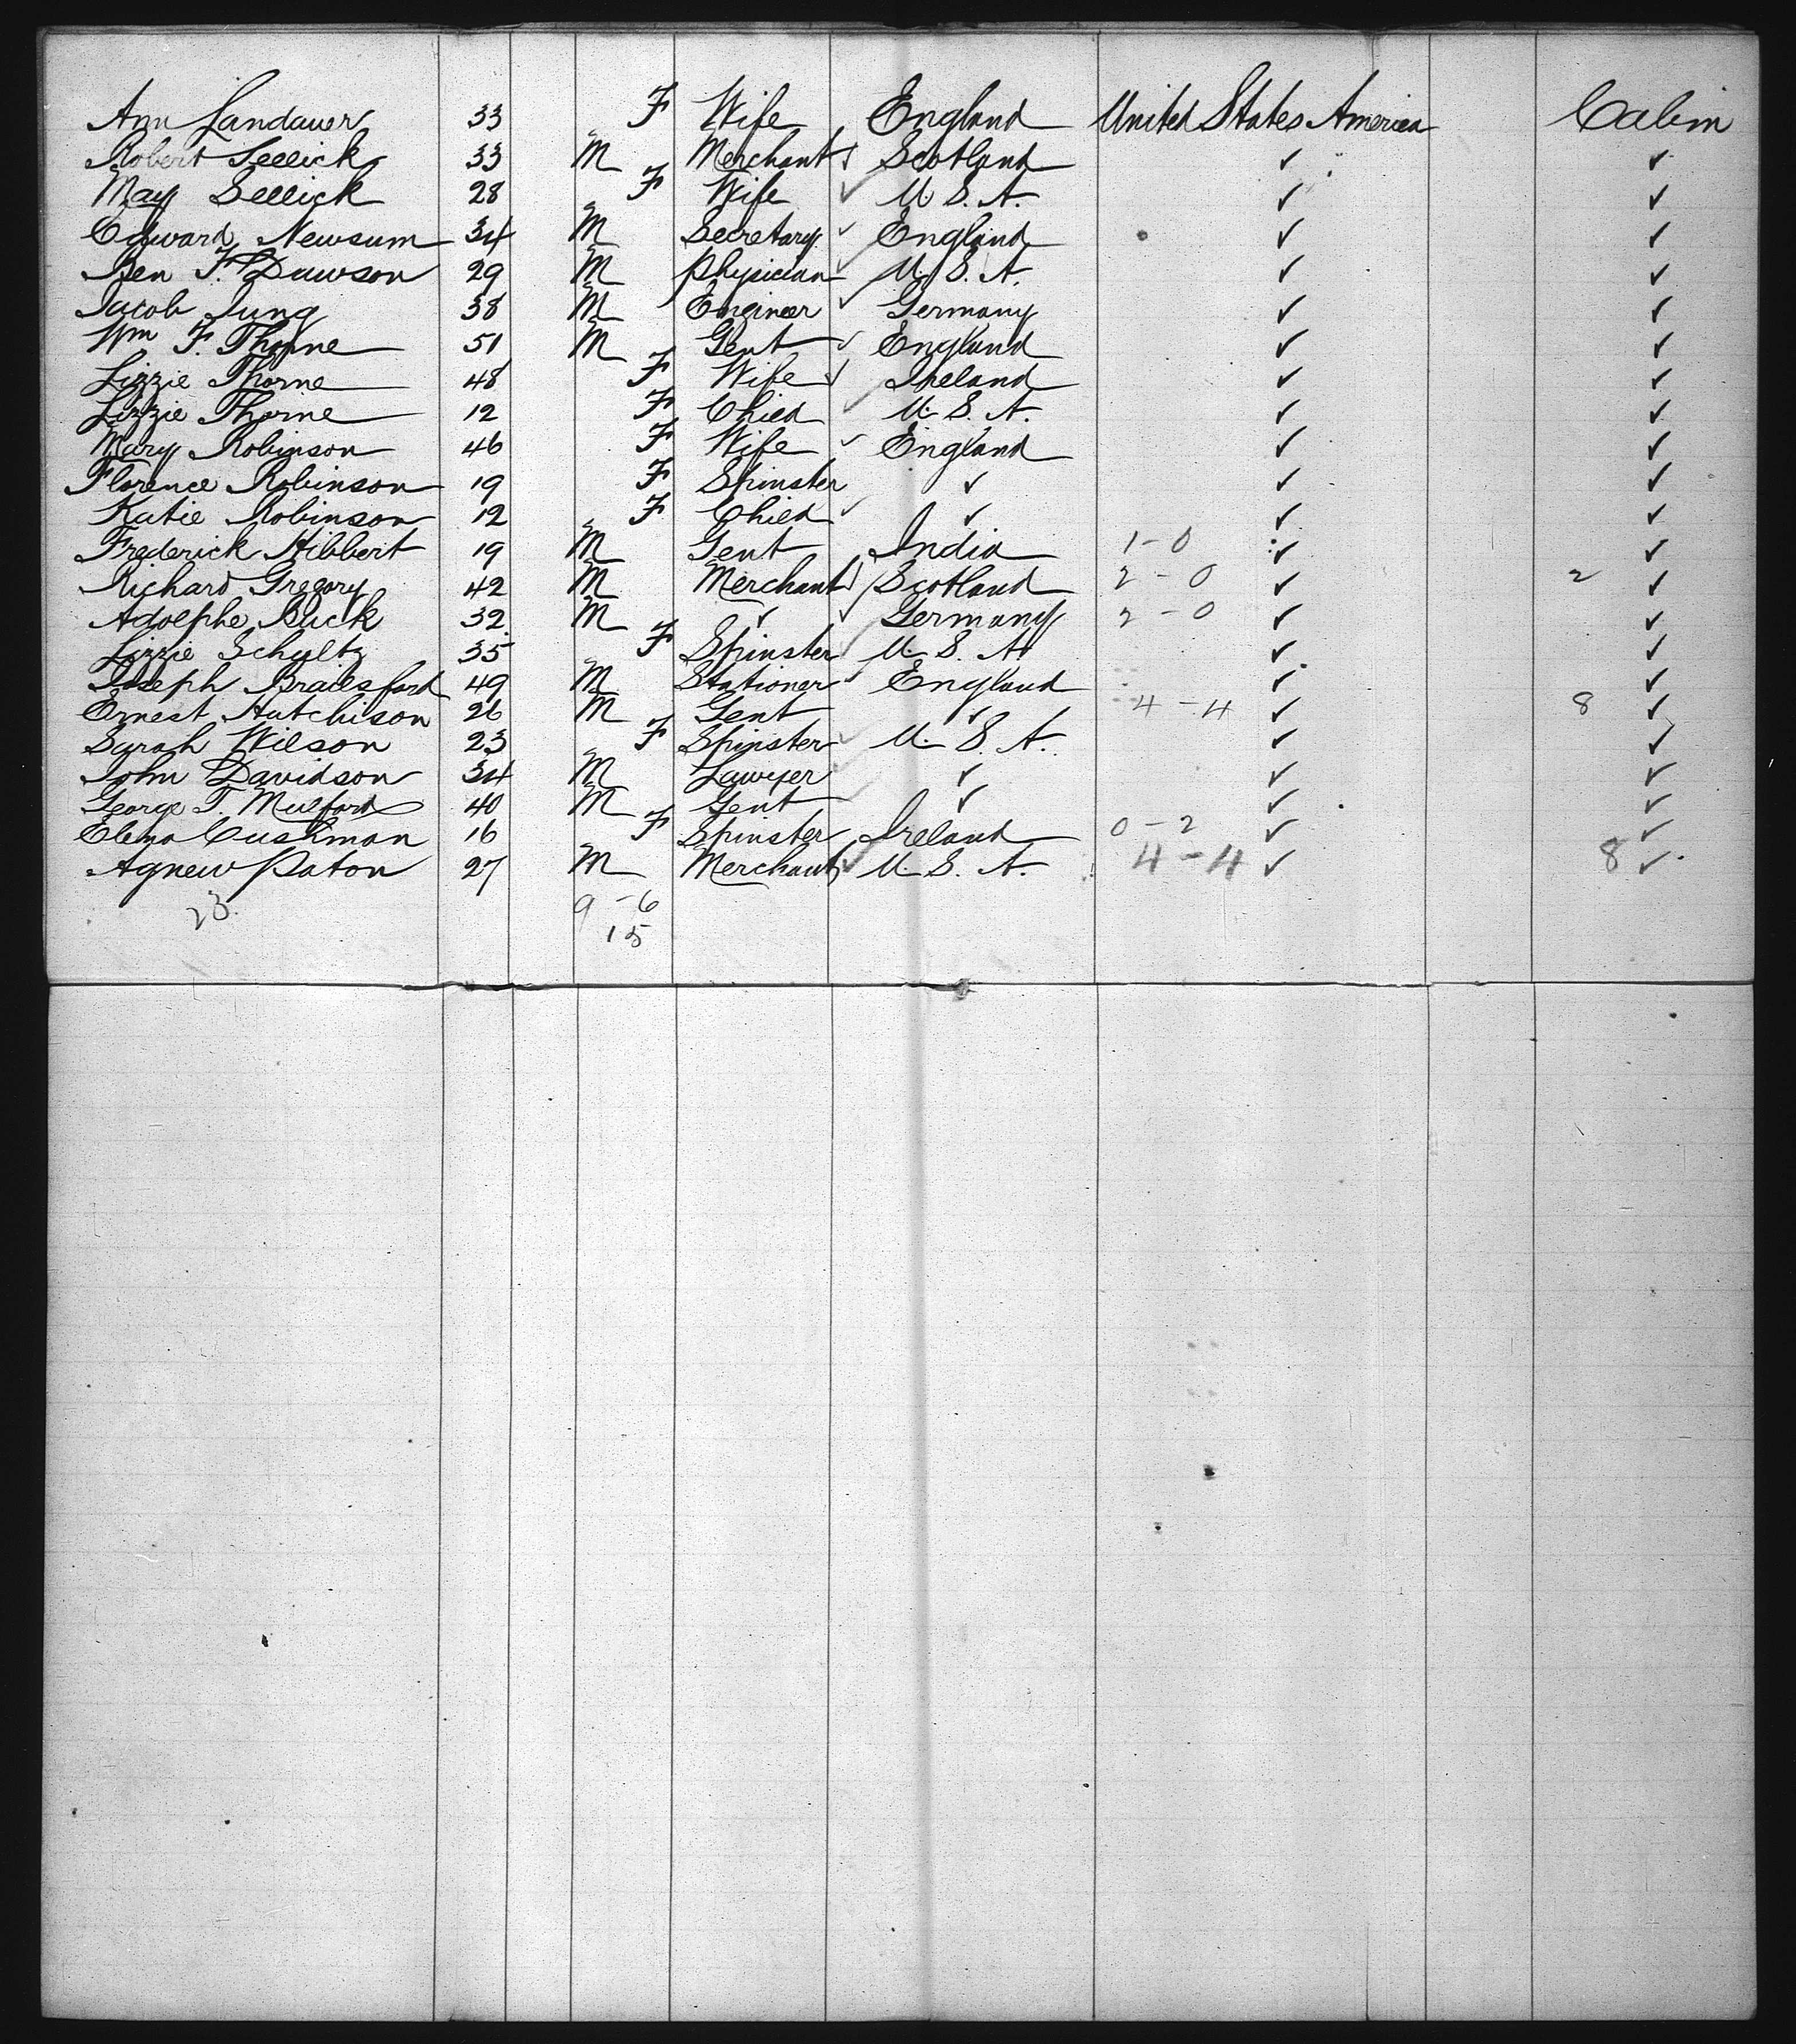 Ann Landauer 33 F Wife England United States America Cabin
Robert Sellick 33 M Merchant Scotland ✓ ✓
May Sellick 28 F Wife U. S. A. ✓ ✓
Edward Newsum 34 M Secretary England ✓ ✓
Ben F. Dawson 29 M Physician U. S. A. ✓ ✓
Jacob Jung 38 M Engineer Germany ✓ ✓
Wm F. Thorne 51 M Gent England ✓ ✓
Lizzie Thorne 48 F Wife Ireland ✓ ✓
Lizzie Thorne 12 F Child U. S. A. ✓ ✓
Mary Robinson 46 F Wife England ✓ ✓
Florence Robinson 19 F Spinster ✓ ✓ ✓
Katie Robinson 12 F Child ✓ ✓ ✓
Frederick Hibbert 19 M Gent India 1-0 ✓ ✓
Richard Gregory 42 M Merchant Scotland 2-0 ✓ 2 ✓
Adolphe Buck 32 M ✓ Germany 2-0 ✓ ✓
Lizzie Schultz 35 F Spinster U. S. A. ✓ ✓
Joseph Brailsford 49 M Stationer England ✓ ✓
Ernest Hutchison 26 M Gent ✓ 4-4 ✓ 8 ✓
Sarah Wilson 23 F Spinster U. S. A. ✓ ✓
John Davidson 34 M Lawyer ✓ ✓ ✓
George T. Mulford 40 M Gent ✓ ✓ ✓
Elena Cushman 16 F Spinster Ireland 0-2 ✓ ✓
Agnew Paton 27 M Merchant U. S. A. 4-4 ✓ 8 ✓
23 9-6
15